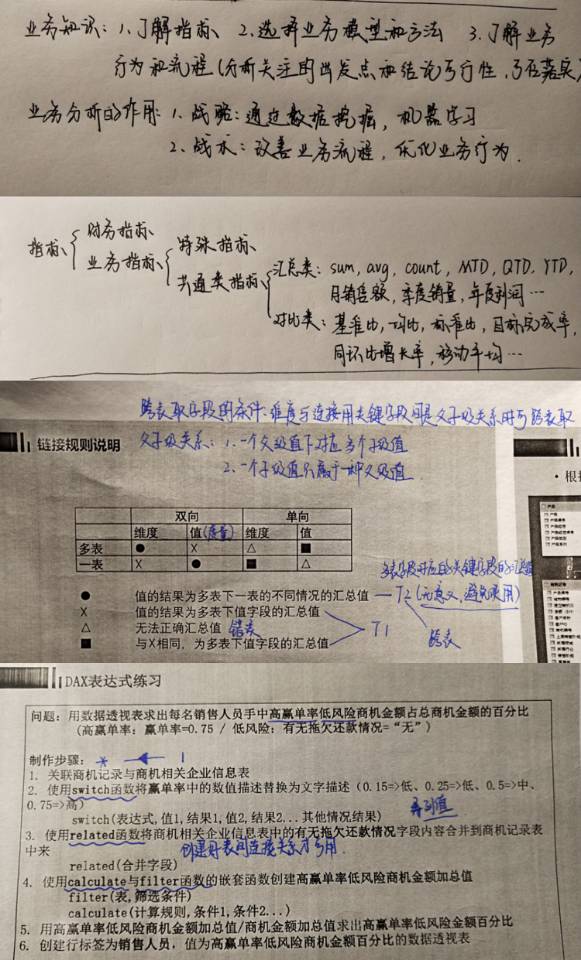 业务知识：1、了解指标、 2、选择业务模型和方法 3、了解业务
行为和流程（分析关注的出发点和结论可行性，可在落实）
业务分析的作用：1、战略：通过数据挖掘，机器学习
2、战术：改善业务流程，优化业务行为.
指标、 财务指标、
业务指标、 特殊指标、
共通类指标、 汇总类：sum, avg, count, MTD, QTD, YTD,
月销售额，季度销量，年度利润…
对比类：基准比，均比，标准比，目标完成率，
同环比增长率，移动平均…
跨表取字段的条件：维度与连接用关键字段间是父子级关系时可跨表取
链接规则说明
父子级关系：1、一个父级值下对应多个子级值
2、一个子级值只属于一种父级值
·根据
双向 单向
维度 值(度量) 维度 值
多表 ● X △ ■
一表 X ● ■ △
● 值的结果为多表下一表的不同情况的汇总值 — T2 (无意义，避免使用)
X 值的结果为多表下值字段的汇总值
△ 无法正确汇总值 错表 T1 跨表
■ 与X相同，为多表下值字段的汇总值
DAX表达式练习
问题：用数据透视表求出每名销售人员手中高赢单率低风险商机金额占总商机金额的百分比
(高赢单率：赢单率=0.75 / 低风险：有无拖欠还款情况=“无”)
制作步骤： * ← 1
1. 关联商机记录与商机相关企业信息表
2. 使用switch函数将赢单率中的数值描述替换为文字描述（0.15=>低、0.25=>低、0.5=>中、
0.75=>高）
switch(表达式,值1,结果1,值2,结果2...其他情况结果)
3. 使用related函数将商机相关企业信息表中的有无拖欠还款情况字段内容合并到商机记录表
中来 创建好表间连接关系才可用.
related(合并字段)
4. 使用calculate与filter函数的嵌套函数创建高赢单率低风险商机金额加总值
filter(表,筛选条件)
calculate(计算规则,条件1,条件2...)
5. 用高赢单率低风险商机金额加总值/商机金额加总值求出高赢单率低风险金额百分比
6. 创建行标签为销售人员，值为高赢单率低风险商机金额百分比的数据透视表